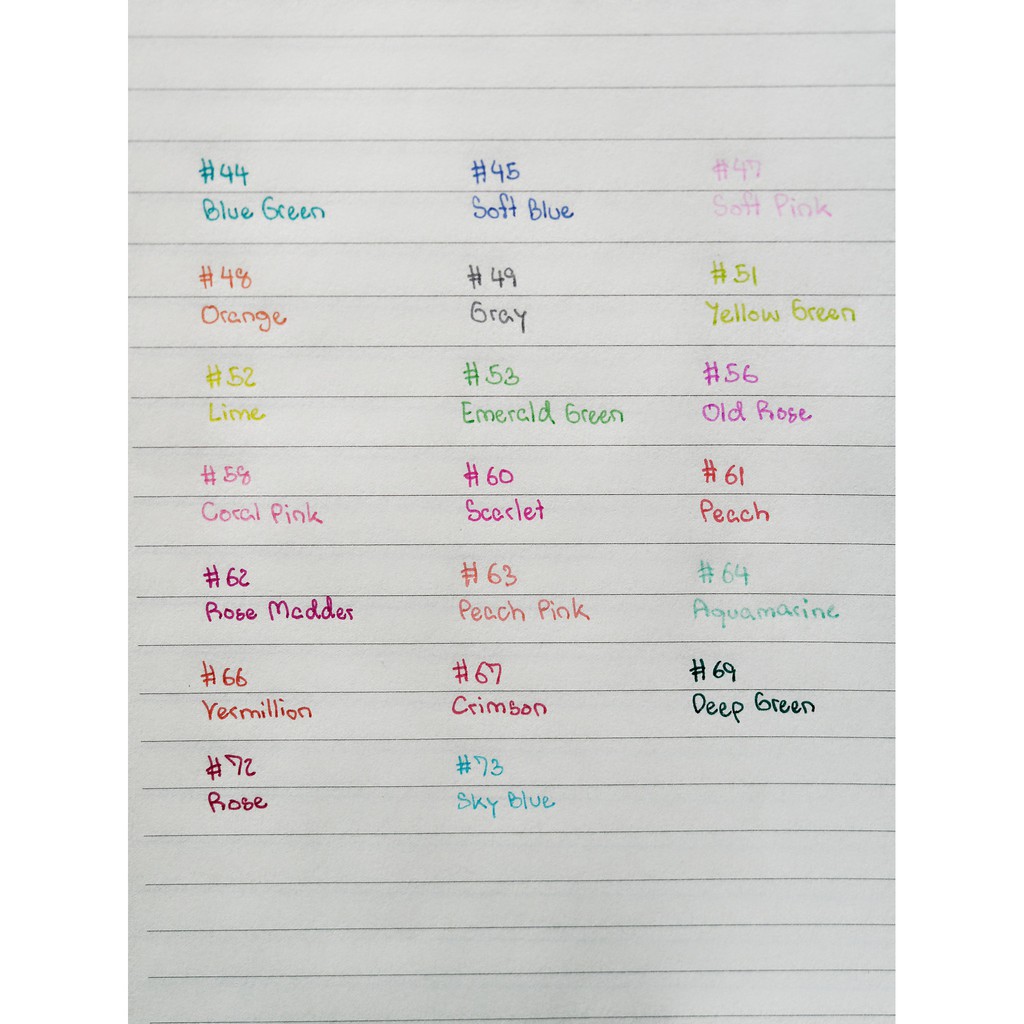 #44 #45 #47
Blue Green Soft Blue Soft Pink
#48 #49 #51
Orange Gray Yellow Green
#52 #53 #56
Lime Emerald Green Old Rose
#58 #60 #61
Coral Pink Scarlet Peach
#62 #63 #64
Rose Madder Peach Pink Aquamarine
#66 #67 #69
Vermillion Crimson Deep Green
#72 #73
Rose Sky Blue